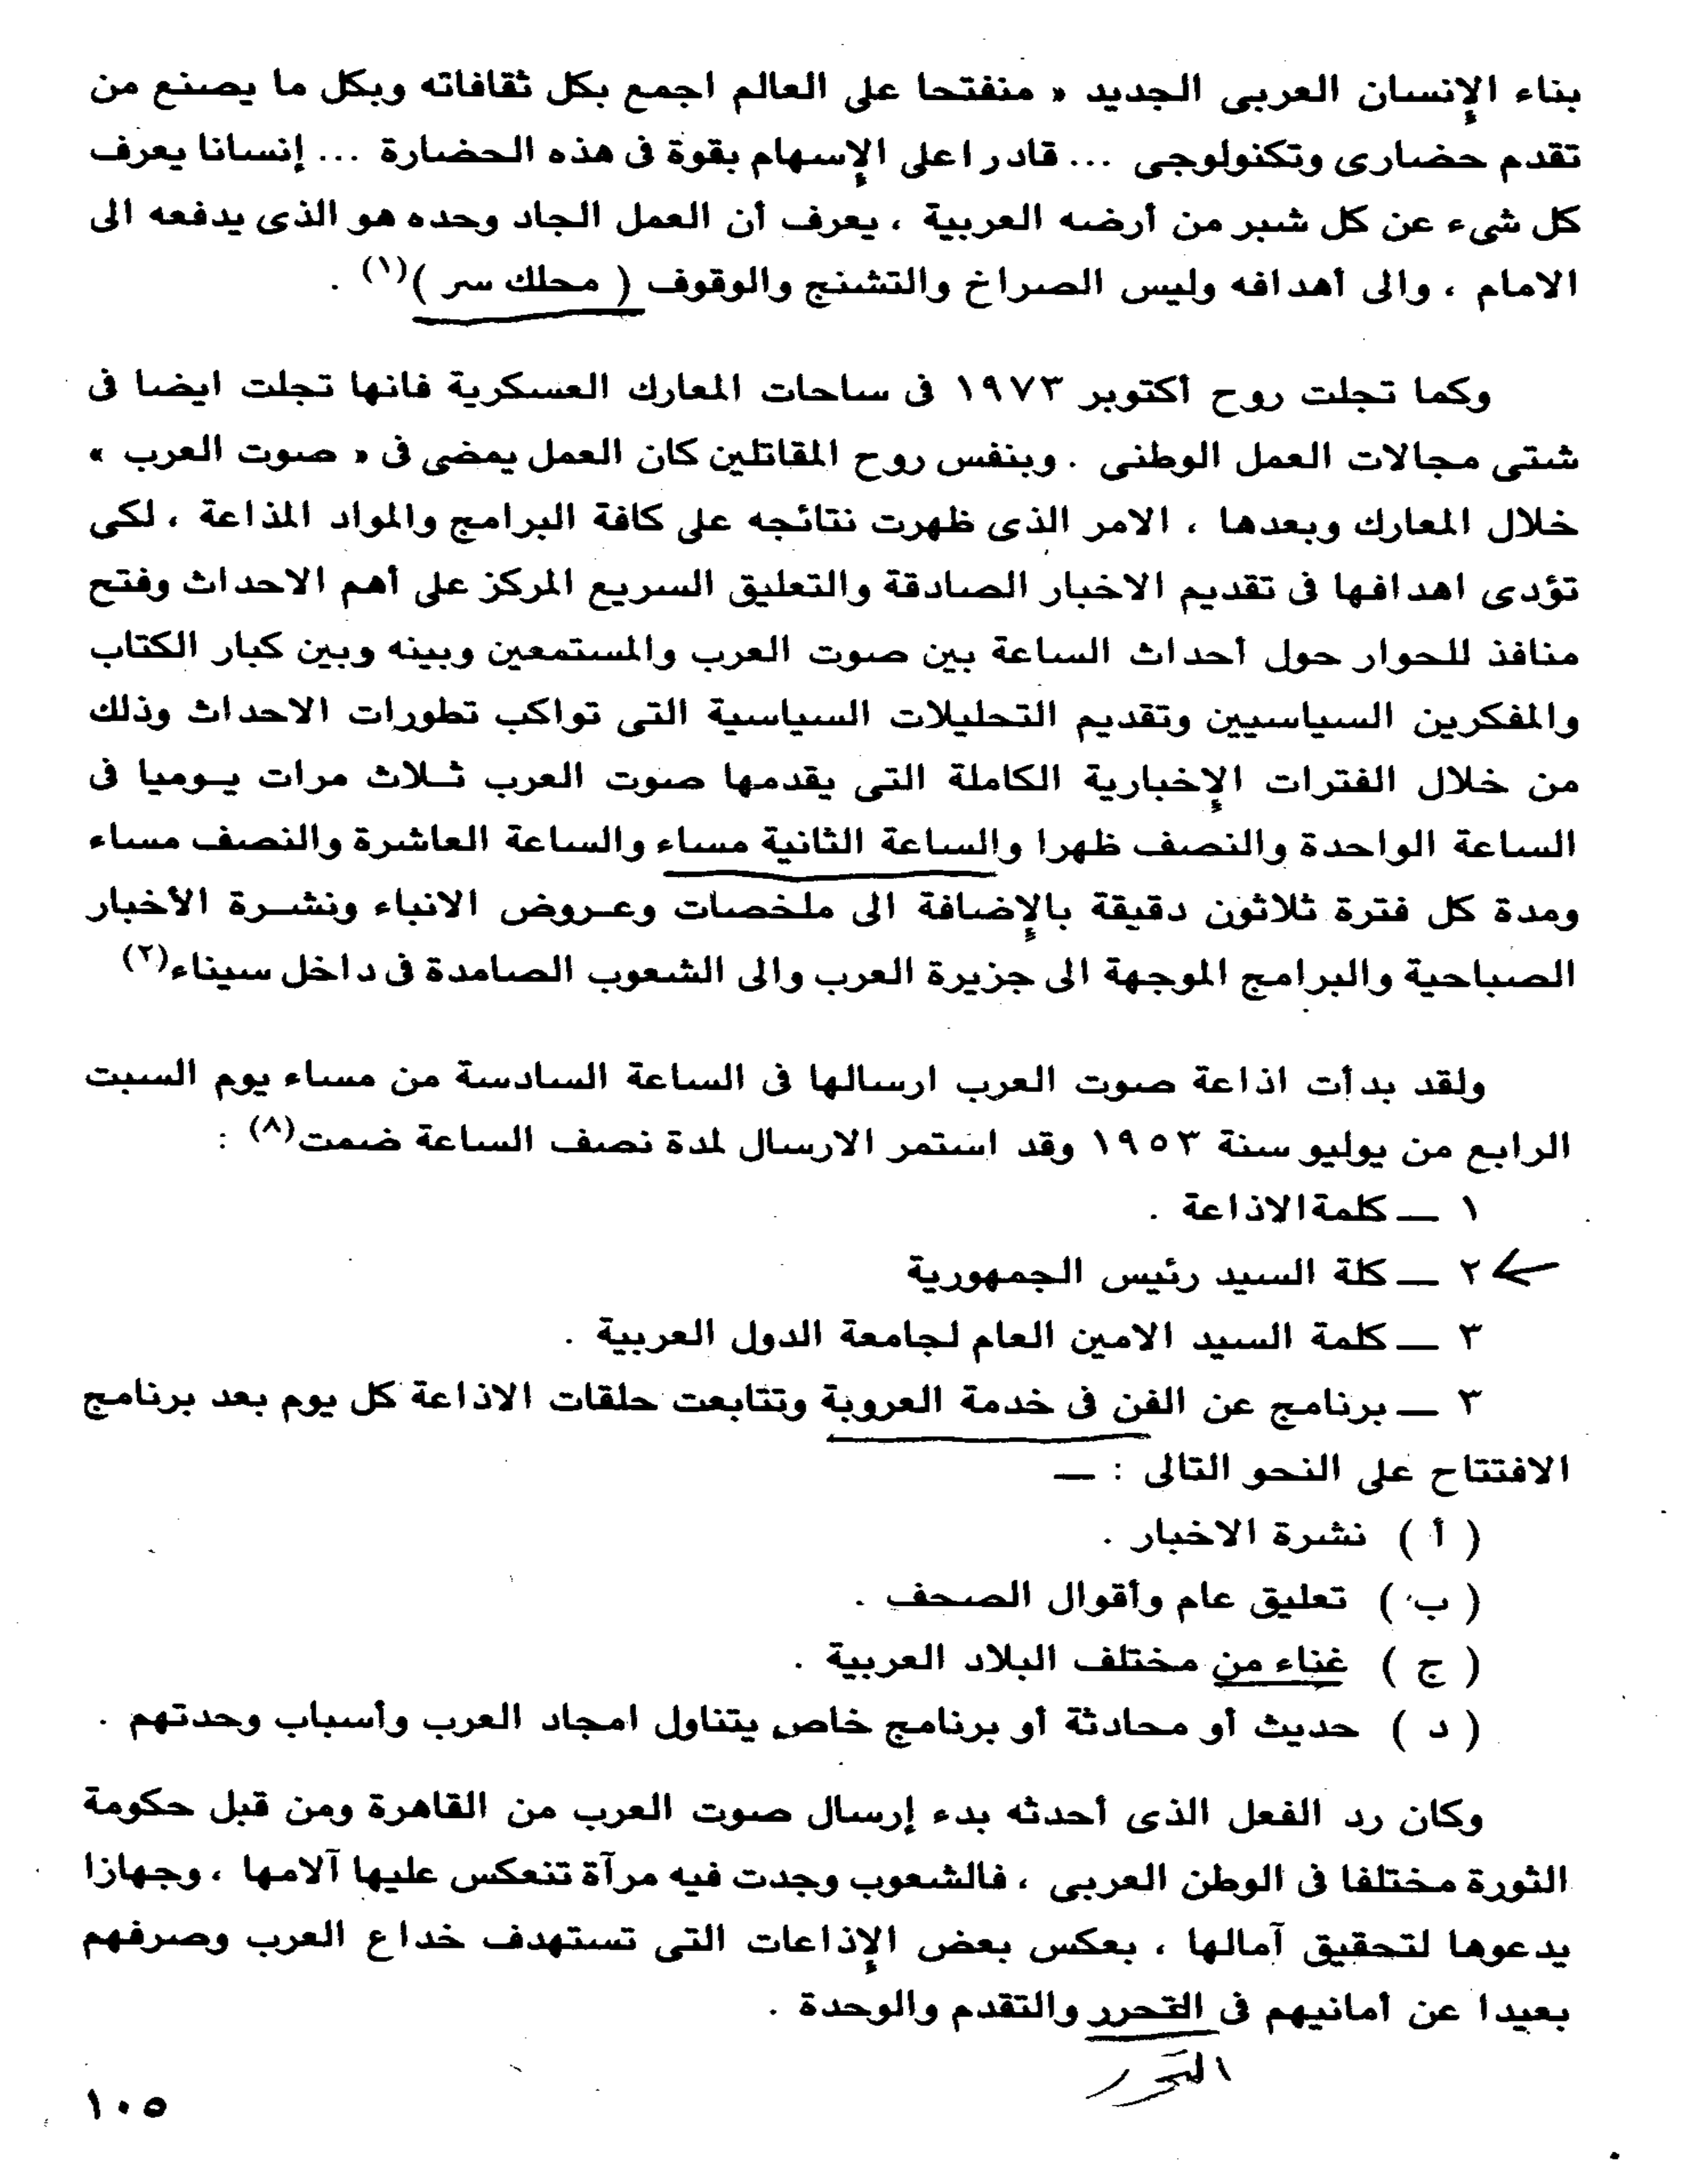 بناء الإنسان العربى الجديد « منفتحا على العالم اجمع بكل ثقافاته وبكل ما يصنع من
تقدم حضارى وتكنولوجى ... قادرا على الإسهام بقوة فى هذه الحضارة ... إنسانا يعرف
كل شىء عن كل شبر من أرضه العربية ، يعرف أن العمل الجاد وحده هو الذى يدفعه الى
الامام ، والى أهدافه وليس الصراخ والتشنج والوقوف ( محلك سر )(١) .
وكما تجلت روح أكتوبر ١٩٧٣ فى ساحات المعارك العسكرية فانها تجلت ايضا فى
شتى مجالات العمل الوطنى . وبنفس روح المقاتلين كان العمل يمضى فى « صوت العرب »
خلال المعارك وبعدها ، الامر الذى ظهرت نتائجه على كافة البرامج والمواد المذاعة ، لكى
تؤدى اهدافها فى تقديم الاخبار الصادقة والتعليق السريع المركز على أهم الاحداث وفتح
منافذ للحوار حول أحداث الساعة بين صوت العرب والمستمعين وبينه وبين كبار الكتاب
والمفكرين السياسيين وتقديم التحليلات السياسية التى تواكب تطورات الاحداث وذلك
من خلال الفترات الإخبارية الكاملة التى يقدمها صوت العرب ثـلاث مرات يـوميا فى
الساعة الواحدة والنصف ظهرا والساعة الثانية مساء والساعة العاشرة والنصف مساء
ومدة كل فترة ثلاثون دقيقة بالإضافة الى ملخصات وعـروض الانباء ونشـرة الأخبار
الصباحية والبرامج الموجهة الى جزيرة العرب والى الشعوب الصامدة فى داخل سيناء(٢)
ولقد بدأت اذاعة صوت العرب ارسالها فى الساعة السادسة من مساء يوم السبت
الرابع من يوليو سنة ١٩٥٣ وقد استمر الارسال لمدة نصف الساعة ضمت(٨) :
١ ــ كلمة الاذاعة .
٢ ــ كلة السيد رئيس الجمهورية
٣ ــ كلمة السيد الامين العام لجامعة الدول العربية .
٣ ــ برنامج عن الفن فى خدمة العروبة وتتابعت حلقات الاذاعة كل يوم بعد برنامج
الافتتاح على النحو التالى : ــ
( أ ) نشرة الاخبار .
( ب ) تعليق عام وأقوال الصحف .
( ج ) غناء من مختلف البلاد العربية .
( د ) حديث أو محادثة أو برنامج خاص يتناول امجاد العرب وأسباب وحدتهم .
وكان رد الفعل الذى أحدثه بدء إرسال صوت العرب من القاهرة ومن قبل حكومة
الثورة مختلفا فى الوطن العربى ، فالشعوب وجدت فيه مرآة تنعكس عليها آلامها ، وجهازا
يدعوها لتحقيق آمالها ، بعكس بعض الإذاعات التى تستهدف خداع العرب وصرفهم
بعيدا عن أمانيهم فى التحرر والتقدم والوحدة .
التحرر
١٠٥